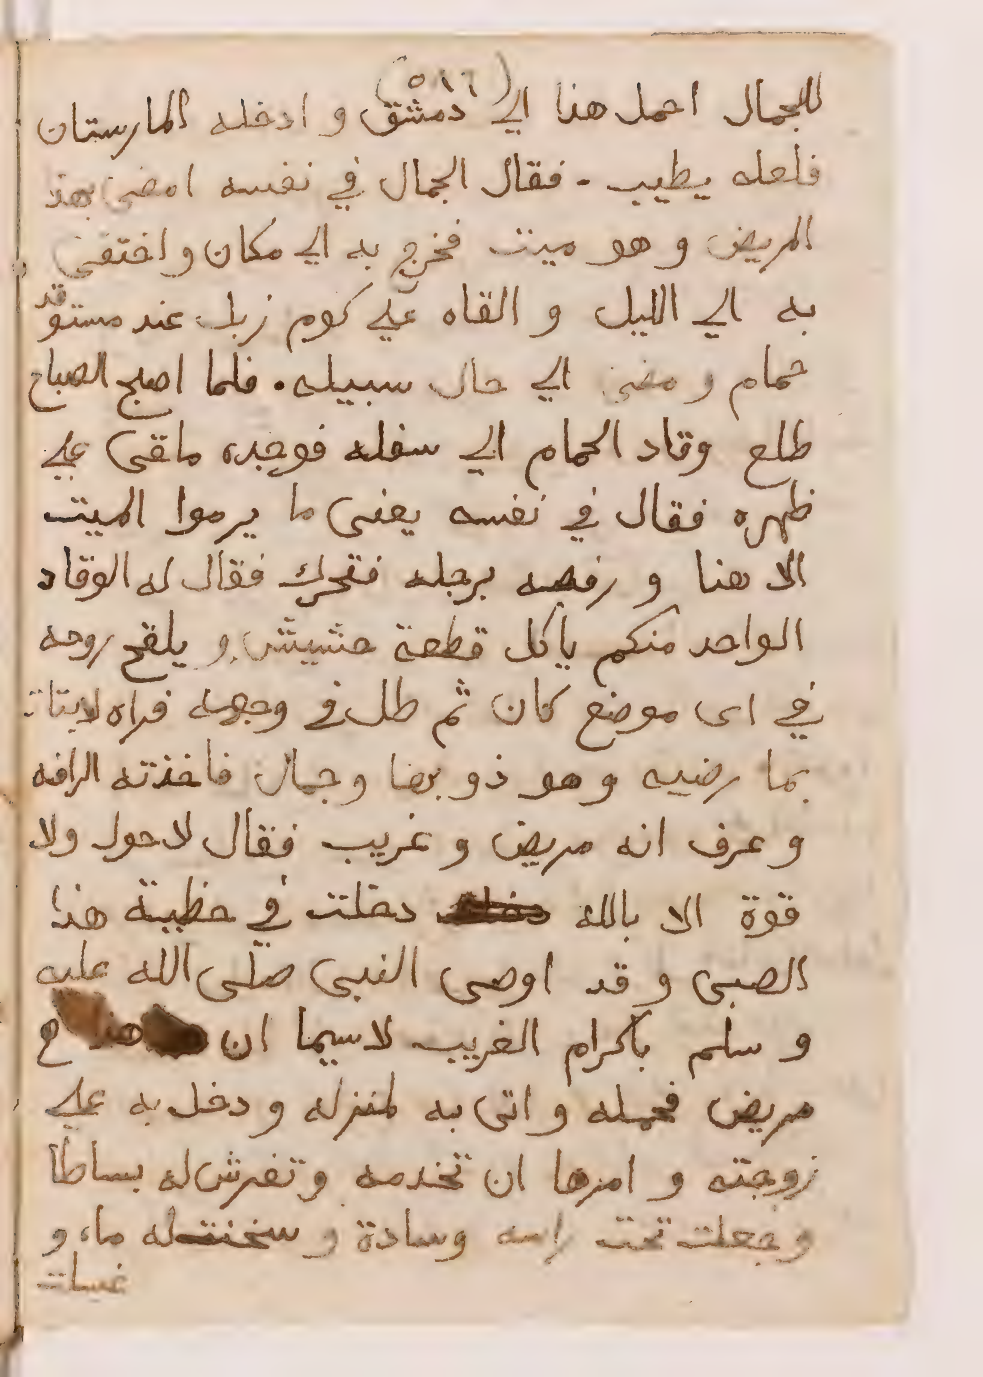 (٥١٦)
للجمال احمل هذا الي دمشق و ادخله المارستان
فلعله يطيب . فقال الجمال في نفسه امضى بهذ
المريض و هو ميت فخرج به الي مكان و اختفى
به الي الليل و القاه علي كوم زبل عند مستوقد
حمام و مضى الي حال سبيله . فلما اصبح الصباح
طلع وقاد الحمام الي سغله فوجده ملقى علي
ظهره فقال في نفسه يعنى ما يرموا الميت
الا هنا و رفصه برجله فتحرك فقال له الوقاد
الواحد منكم ياكل قطعة حشيش و يلقح روحه
في اى موضع كان ثم طل في وجهه فراه لابنات
بعارضيه و هو ذو بها و جمال فاخذته الرافه
و عرف انه مريض و غريب فقال لا حول ولا
قوة الا بالله دخلت في خطيىة هذا
الصبى و قد اوصى النبى صلّى الله عليه
و سلم باكرام الغريب لاسيما ان
مريض فحمله و اتى به لمنزله و دخل به علي
زوجته و امرها ان تخدمه و تفرش له بساطا
و جعلت تحت راسه وسادة و سخنت له ماء و
غسلت